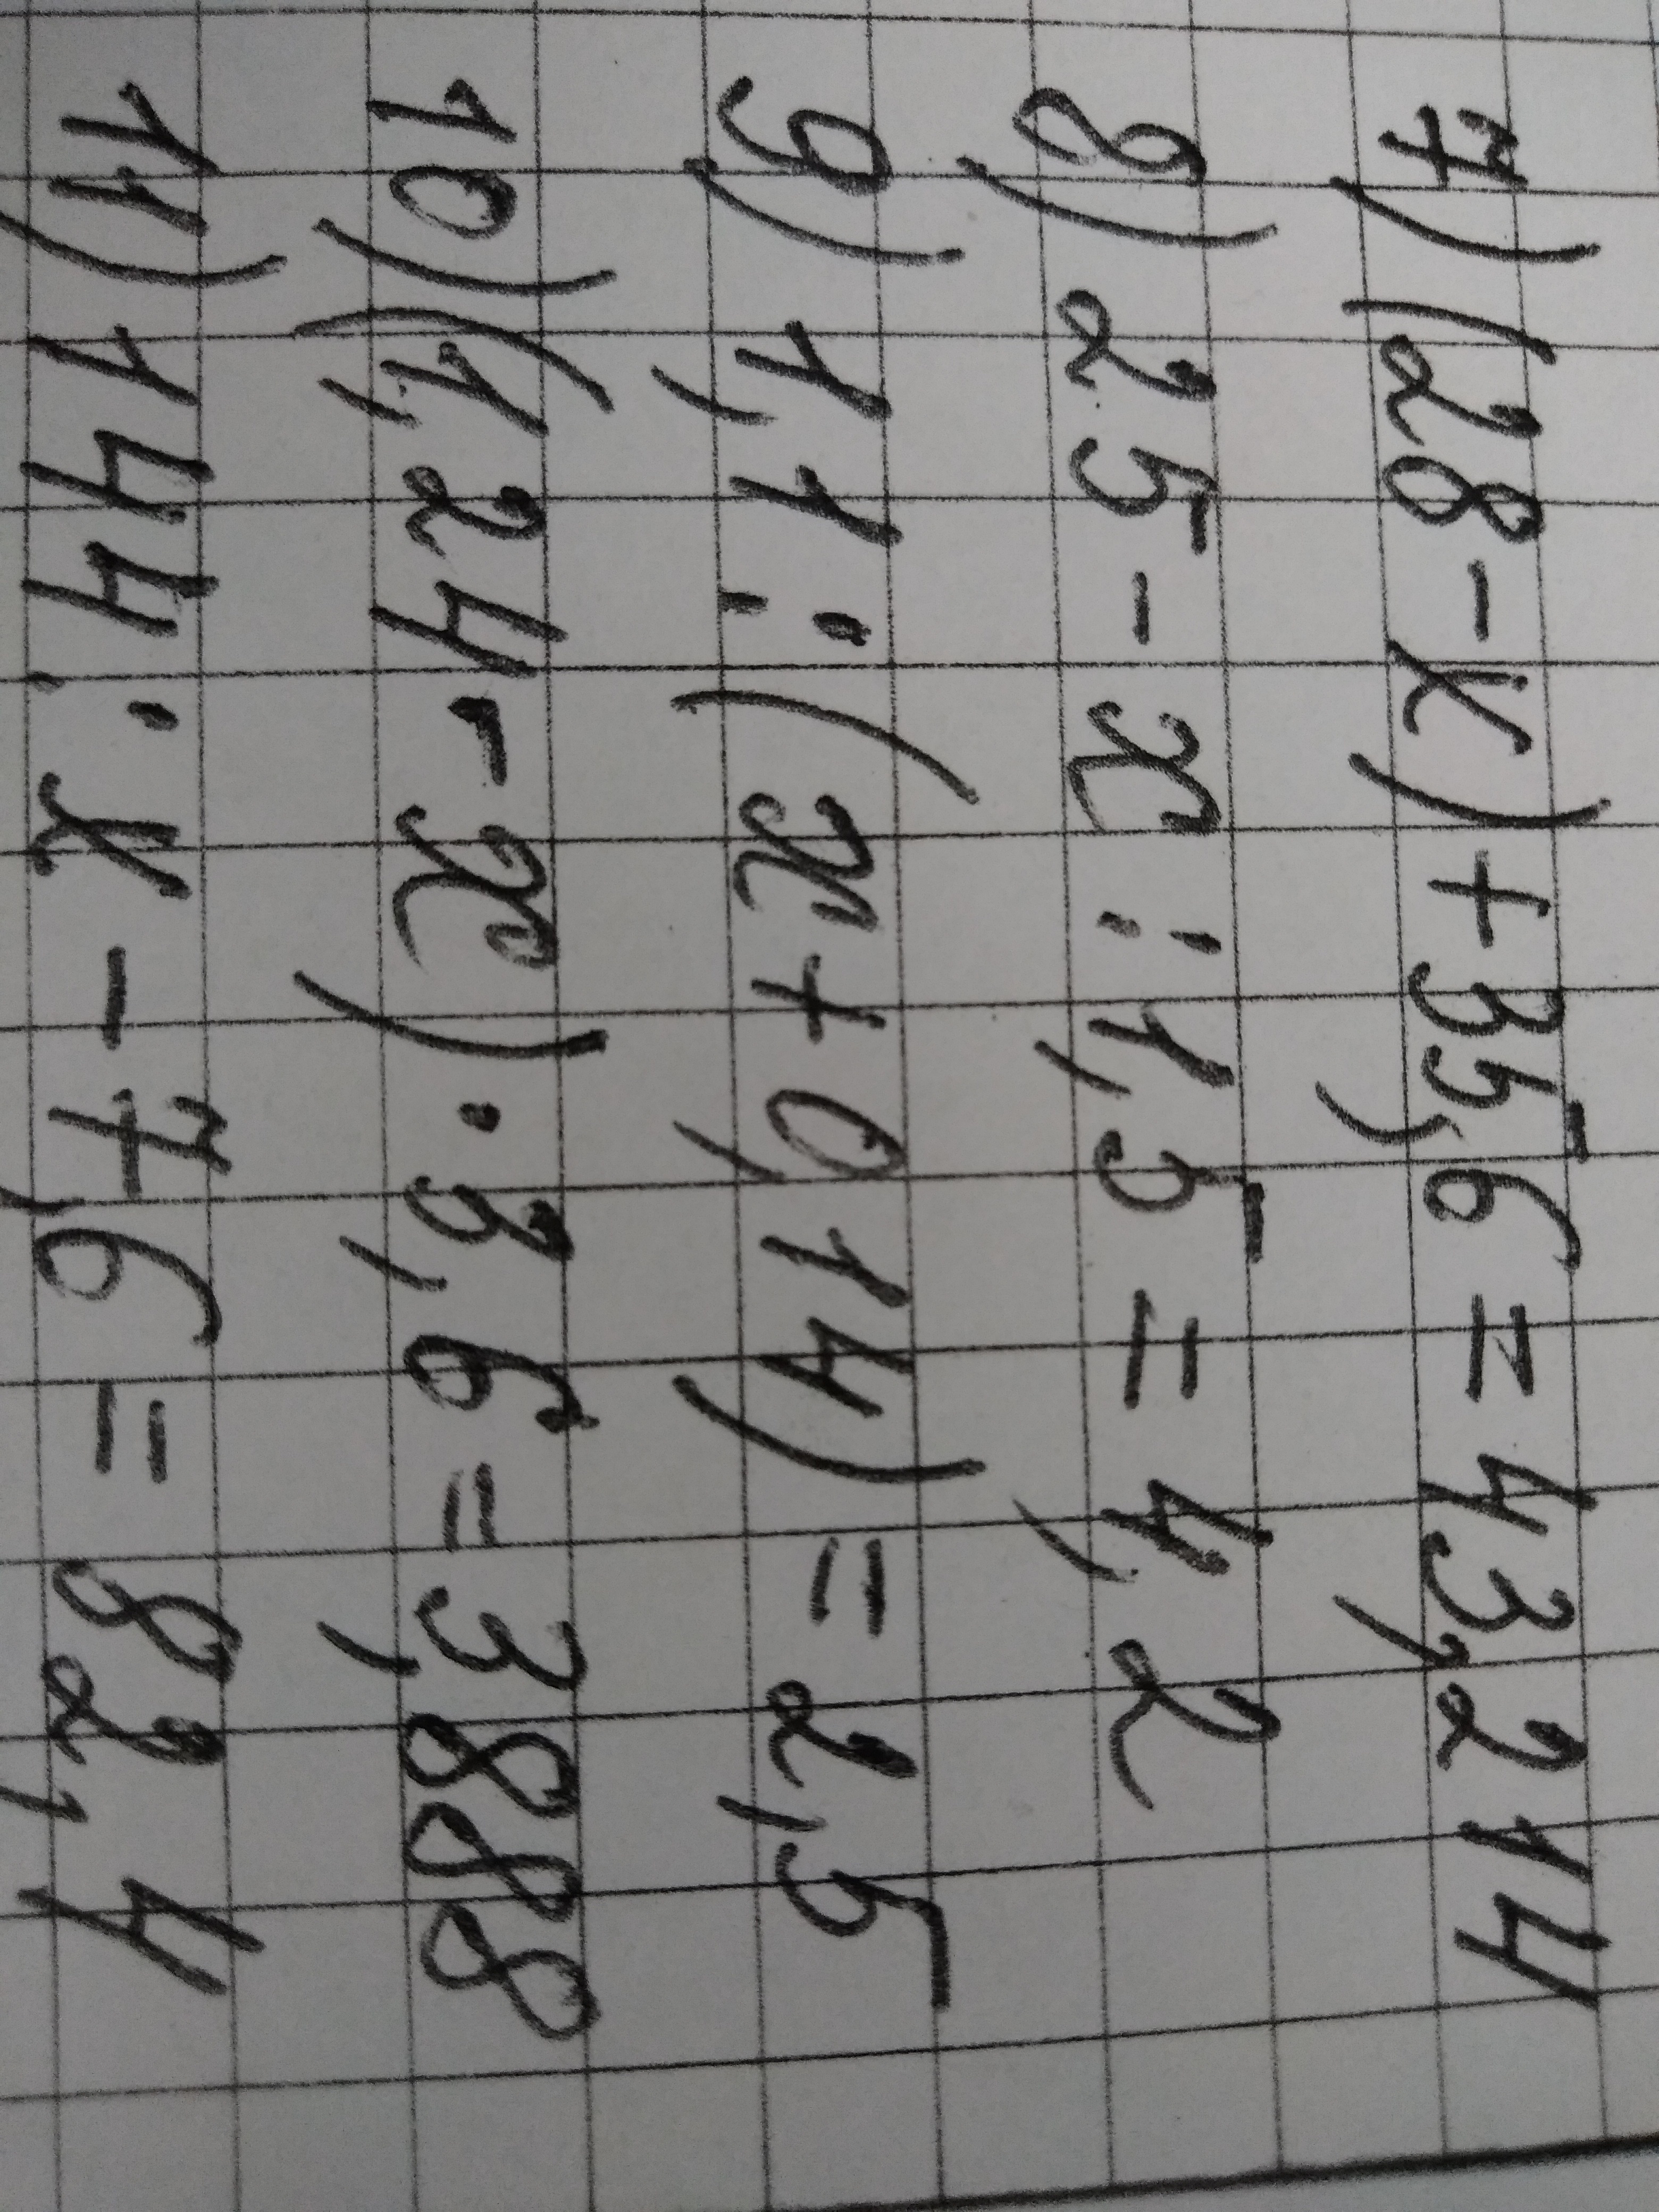 7) (28 - x) + 35,6 = 43,214
8) 25 - x : 1,5 = 4,2
9) 1,1 : (x + 0,14) = 2,5
10) (1,24 - x) · 3,6 = 3,888
11) 144 : x - 7,6 = 82,4